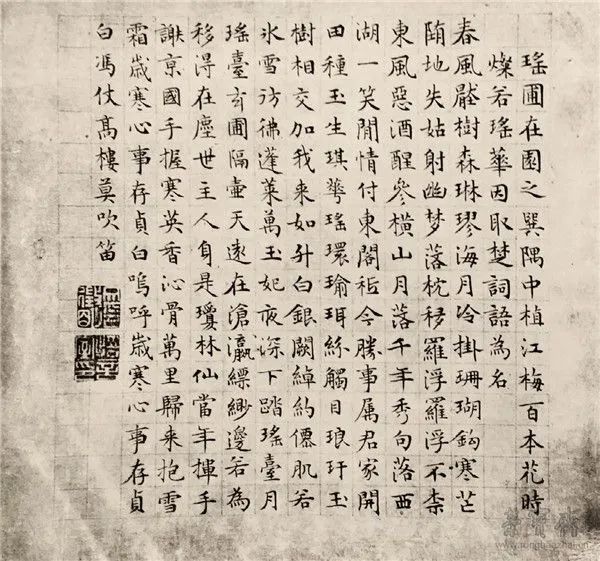 瑤圃在園之巽隅中植江梅百本花時
燦若瑤華因取楚詞語為名
春風壓樹森琳璆海月冷掛珊瑚鈎寒芒
隋地失姑射幽梦落枕移羅浮羅浮不柰
東風惡酒醒參橫山月落千年秀句落西
湖一笑閒情付東閣秪今勝事属君家開
田種玉生琪華瑤環瑜珥紛觸目琅玕玉
樹相交加我来如升白銀闕綽約僊肌若
氷雪彷彿蓬萊萬玉妃夜深下踏瑤臺月
瑤臺玄圃隔壺天遙在滄瀛縹緲邊若為
移得在塵世主人身是瓊林仙當年揮手
謝京國手握寒英香沁骨萬里歸来抱雪
霜歲寒心事存貞白嗚呼歲寒心事存貞
白馮仗高樓莫吹笛
www.rongbaozhai.cn